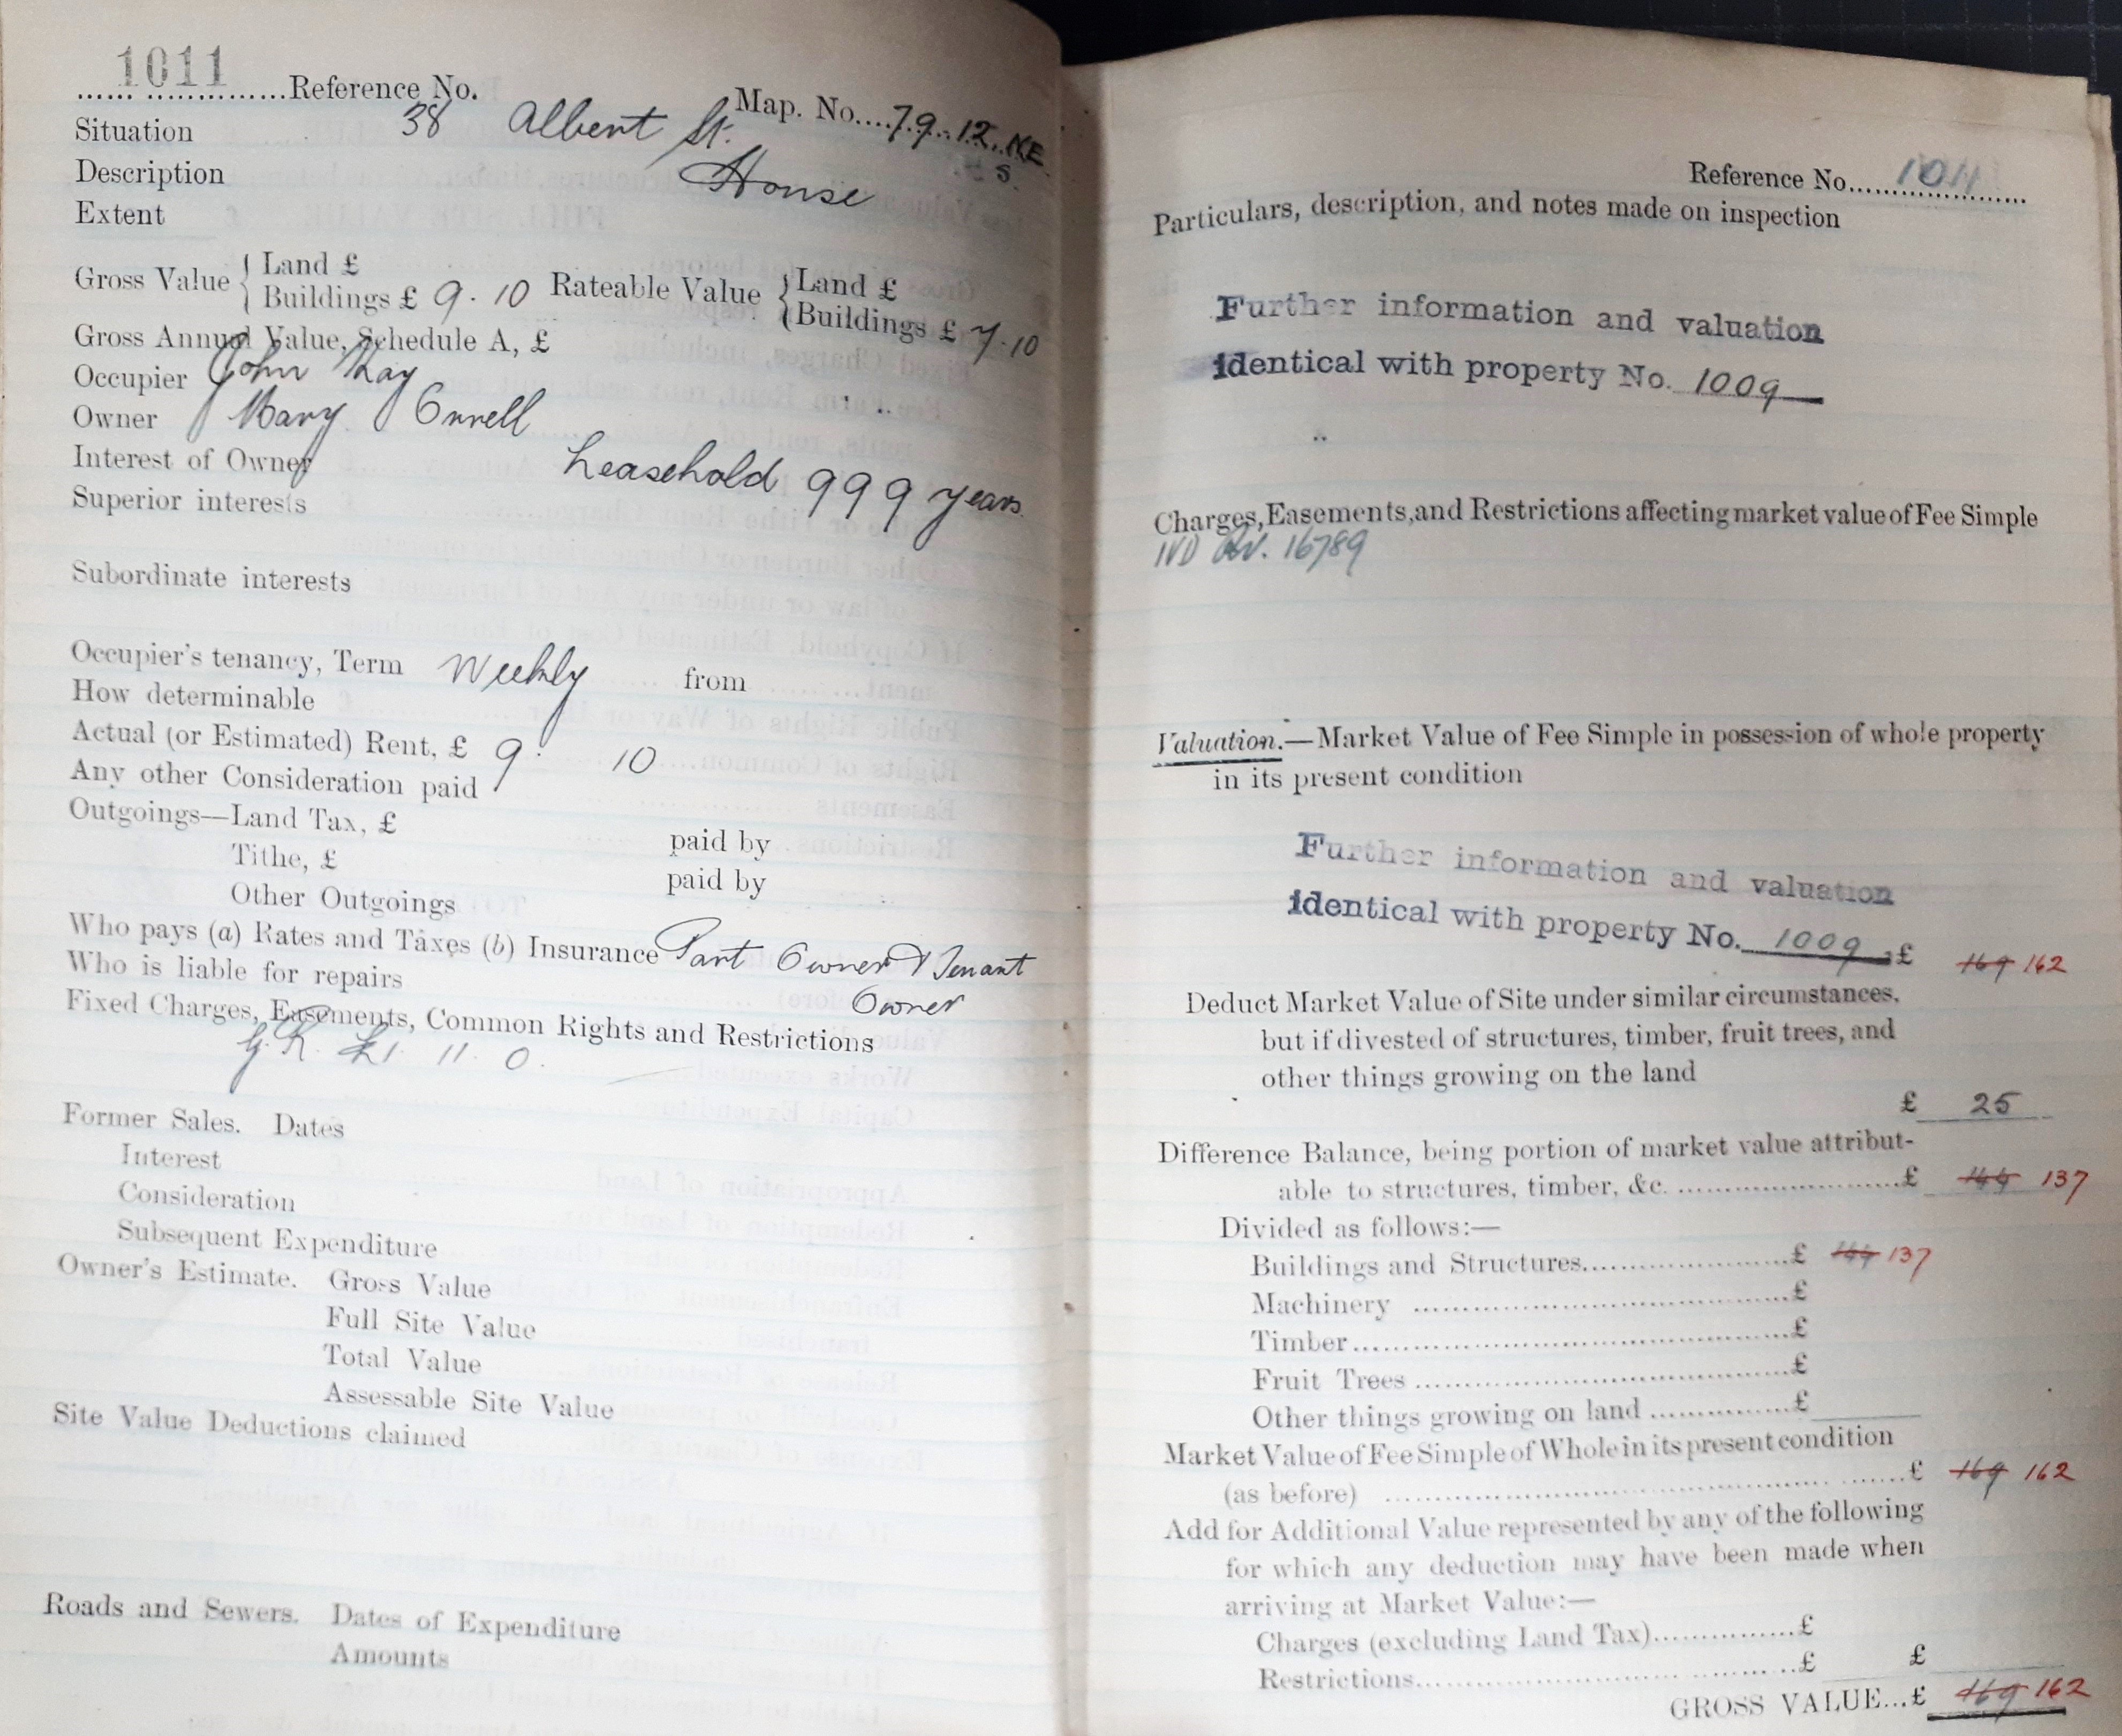 1011 Reference No. Map. No. 79.12. NE
Situation 38 Albert St. S.
Description House
Extent
Gross Value { Land £ Rateable Value { Land £
Buildings £ 9. 10 Buildings £ 7.10
Gross Annual Value, Schedule A, £
Occupier John Kay
Owner Mary Orrell
Interest of Owner Leasehold 999 years
Superior interests
Subordinate interests
Occupier's tenancy, Term Weekly from
How determinable
Actual (or Estimated) Rent, £ 9. 10
Any other Consideration paid
Outgoings—Land Tax, £ paid by
Tithe, £ paid by
Other Outgoings
Who pays (a) Rates and Taxes (b) Insurance Part Owner & Tenant
Who is liable for repairs Owner
Fixed Charges, Easements, Common Rights and Restrictions
G.R. £1. 11. 0.
Former Sales. Dates
Interest
Consideration
Subsequent Expenditure
Owner's Estimate. Gross Value
Full Site Value
Total Value
Assessable Site Value
Site Value Deductions claimed
Roads and Sewers. Dates of Expenditure
Amounts
Reference No. 1011
Particulars, description, and notes made on inspection
Further information and valuation
identical with property No. 1009
Charges, Easements, and Restrictions affecting market value of Fee Simple
IVD 16789
Valuation.—Market Value of Fee Simple in possession of whole property
in its present condition
Further information and valuation
identical with property No. 1009 £ 169 162
Deduct Market Value of Site under similar circumstances,
but if divested of structures, timber, fruit trees, and
other things growing on the land
£ 25
Difference Balance, being portion of market value attribut-
able to structures, timber, &c. £ 144 137
Divided as follows:—
Buildings and Structures £ 144 137
Machinery £
Timber £
Fruit Trees £
Other things growing on land £
Market Value of Fee Simple of Whole in its present condition
(as before) £ 169 162
Add for Additional Value represented by any of the following
for which any deduction may have been made when
arriving at Market Value:—
Charges (excluding Land Tax) £
Restrictions £ £
GROSS VALUE...£ 169 162